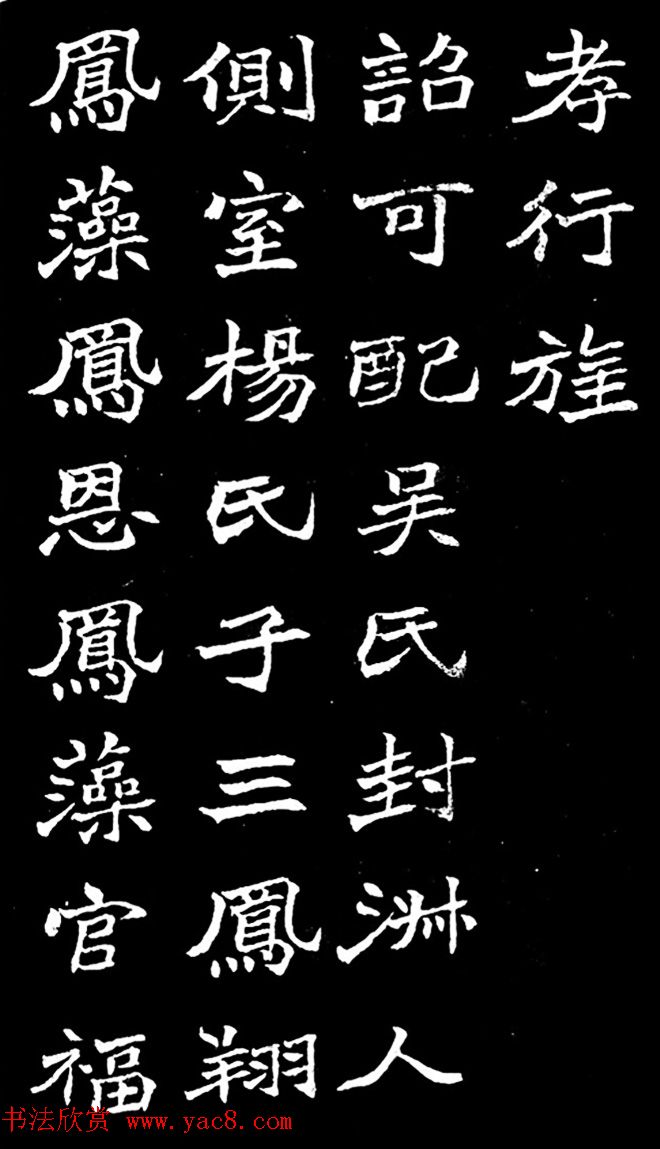 孝行旌
詔可配吴氏封淋人
側室楊氏子三鳳翔
鳳藻鳳恩鳳藻官福
书法欣赏 www.yac8.com